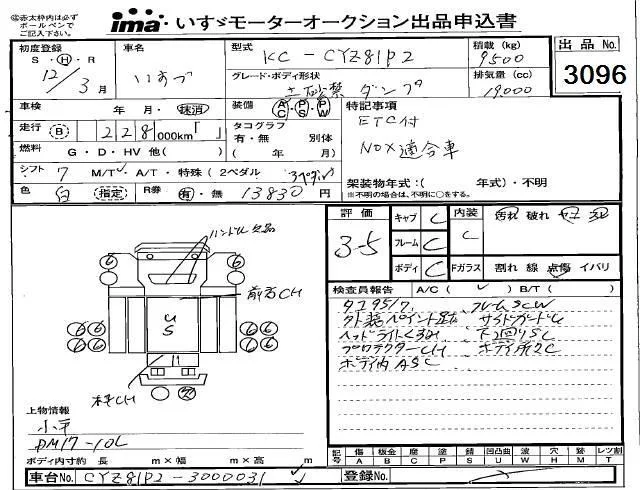 ◎赤太枠内は必ず
ボールペンで
ご記入下さい。
ima いすゞモーターオークション出品申込書
初度登録 S・H・R 12年 3月
車名 いすゞ
型式 KC-CYZ81P2
積載(kg) 9500
出品No. 3096
グレード・ボディ形状 土砂禁ダンプ
排気量(cc) 19000
車検 年・月・抹消
装備 AC・PS・PW
特記事項
ETC付
NOX適合車
走行 B 228,000km「 」
タコグラフ 有・無 別体
( 年 月)
燃料 G・D・HV 他( )
シフト 7 M/T・A/T・特殊(2ペダル 3ペダル)
架装物年式:( 年式)・不明
※不明の場合は、不明に○をする。
色 白 (指定) R券 有・無 13830円
評価 3-5
キャブ C
フレーム C
ボディ C
内装 C
汚れ 破れ
Fガラス 割れ 線 点傷 イバリ
検査員報告 A/C( ) B/T( )
外装ペイント
サイドガードU
ヘッドライトくるみ
下回りSC
プロテクターCH
ボディ所々C
ボディ内ASC
ハンドル欠品
前右CH
U
S
上物情報
小平
DM17-10L
ボディ内寸約 長 m×幅 m×高 m
記号 傷 A 板金 B 腐 C 塗 P 錆 S 凹凸曲 U 波 W 穴 H 無 M レツ割 T
車台No. CYZ81P2-3000031
登録No.